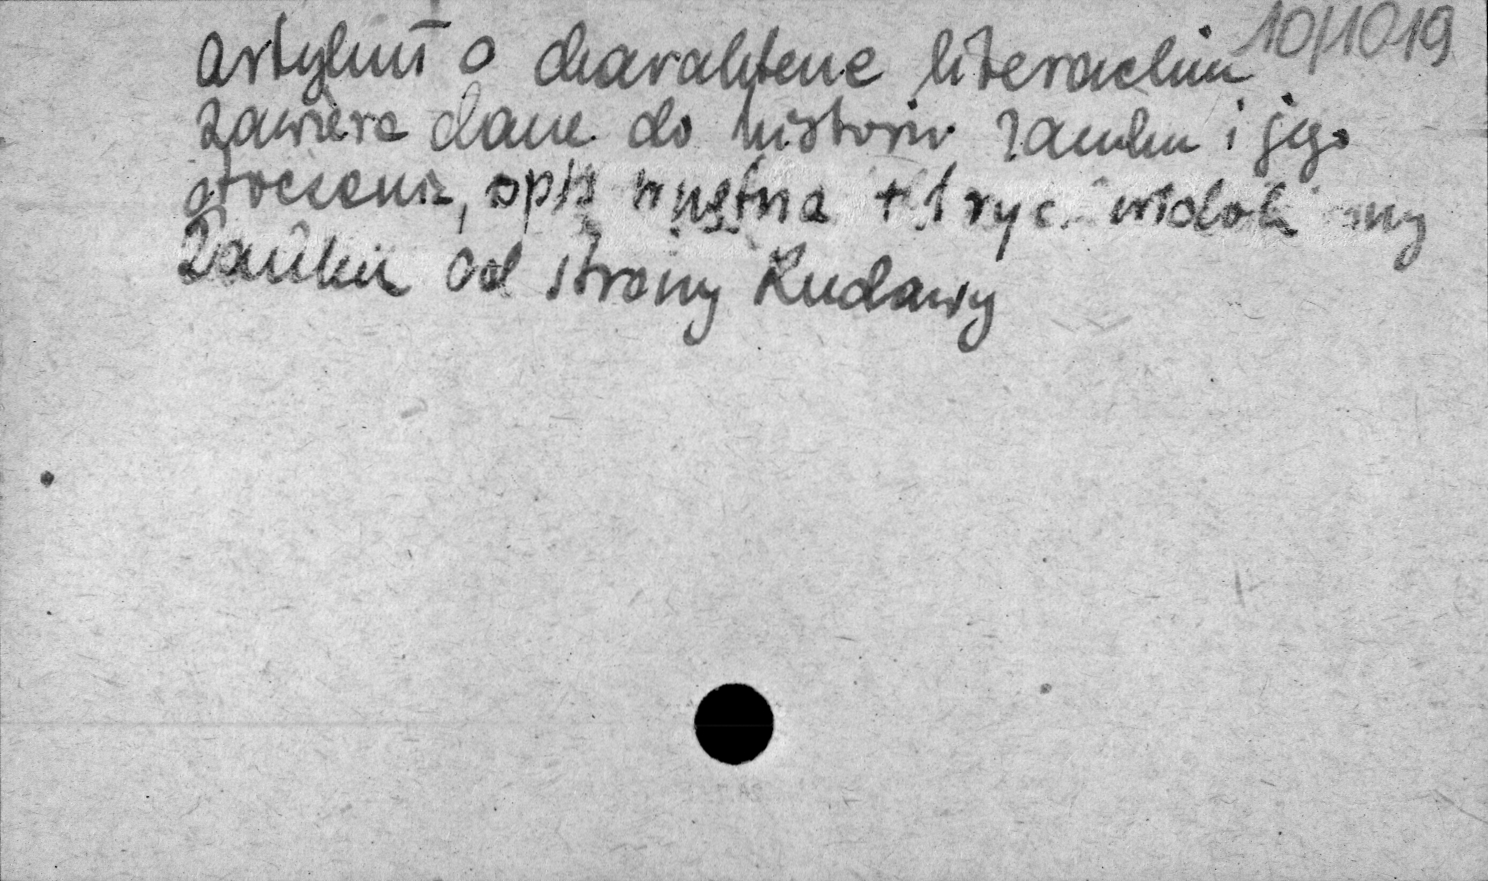 10/1019
artykuł o charakterze literackim
zawiera dane do historii zamku i jego
otoczenia, opis wnętrza + 1 ryc. widok
zamku od strony Rudawy